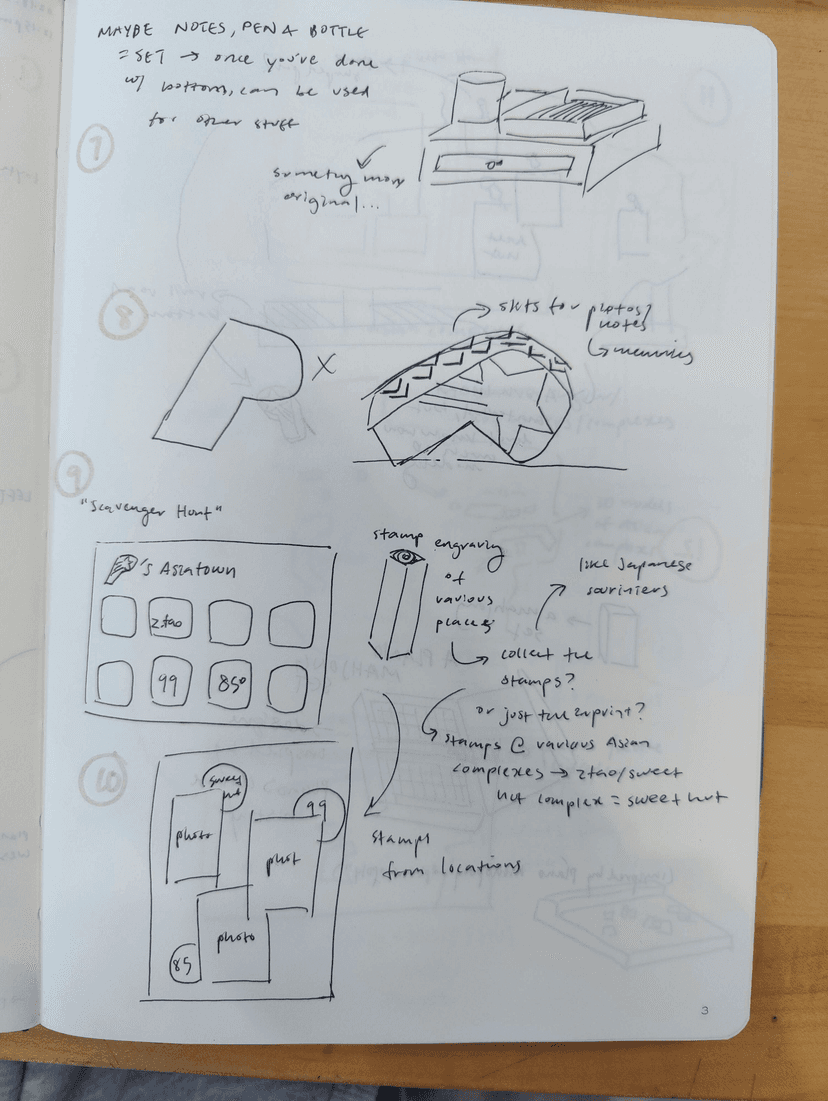 MAYBE NOTES, PEN & BOTTLE
= SET → once you've done
w/ bottom, can be used
for other stuff
7
something more
original...
8
X
slits for photos/
notes
↳ memories
9
"Scavenger Hunt"
's Asiatown
ztao
99
85°
stamp engraving
of
various
places
like Japanese
collect the
stamps?
or just the inprint?
stamps @ various Asian
complexes → ztao/sweet
hut complex = sweet hut
10
sweet
hut
photo
99
phot
photo
85
stamps
from locations
3